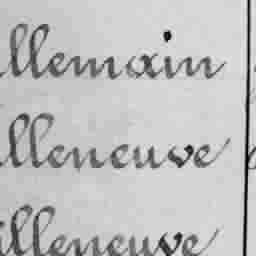 illemain
illeneuve
illeneuve